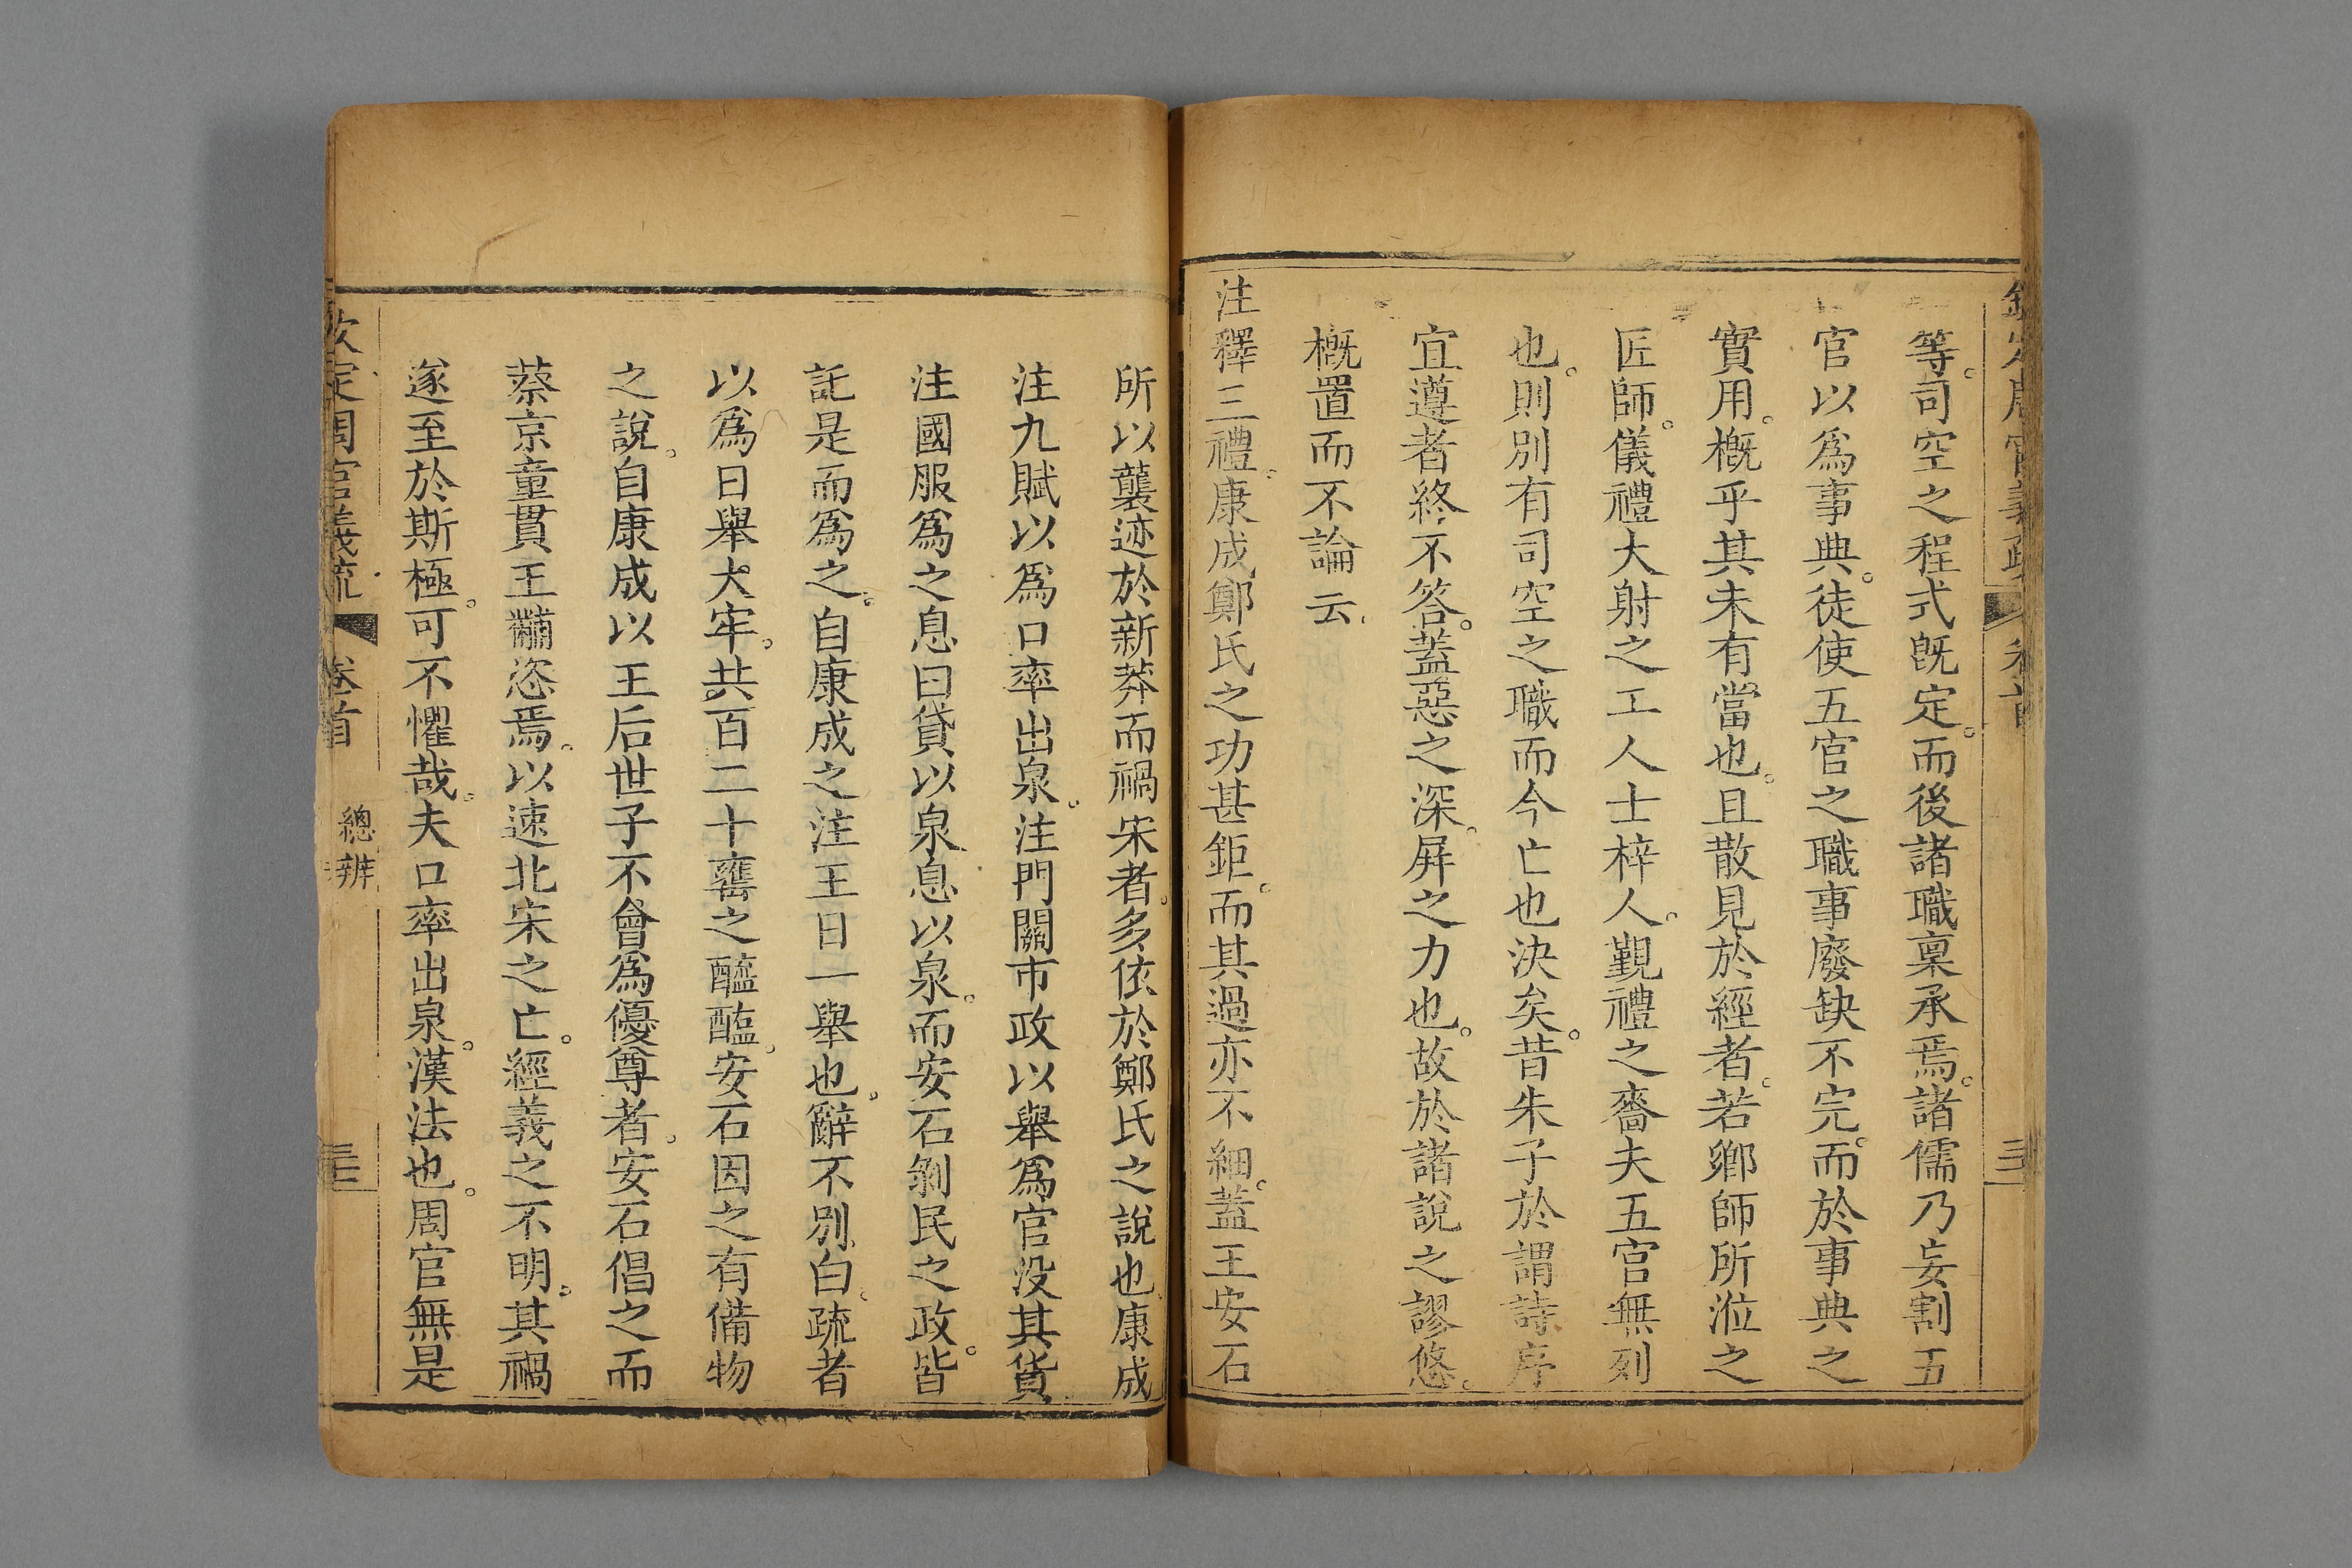 等。司空之程式旣定。而後諸職稟承焉。諸儒乃妄割五
官以爲事典。徒使五官之職事廢缺不完。而於事典之
實用。槪乎其未有當也。且散見於經者。若鄉師所涖之
匠師。儀禮大射之工人士梓人。覲禮之嗇夫五官無列
也。則別有司空之職而今亡也決矣。昔朱子於謂詩序
宜遵者終不答。蓋惡之深。屏之力也。故於諸說之謬悠。
槪置而不論云。
注釋三禮。康成鄭氏之功甚鉅。而其過亦不細。蓋王安石
所以襲迹於新莽而禍宋者。多依於鄭氏之說也。康成
注九賦以爲口率出泉。注門關市政以舉爲官沒其貨
注國服爲之息曰貸以泉息以泉。而安石剝民之政。皆
託是而爲之。自康成之注王日一舉也。辭不別白。疏者
以爲日舉大牢。共百二十罋之醯醢。安石因之有備物
之說。自康成以王后世子不會爲優尊者。安石倡之而
蔡京童貫王黼恣焉。以速北宋之亡。經義之不明。其禍
遂至於斯極。可不懼哉。夫口率出泉。漢法也。周官無是
欽定周官義疏 卷首 總辨 三